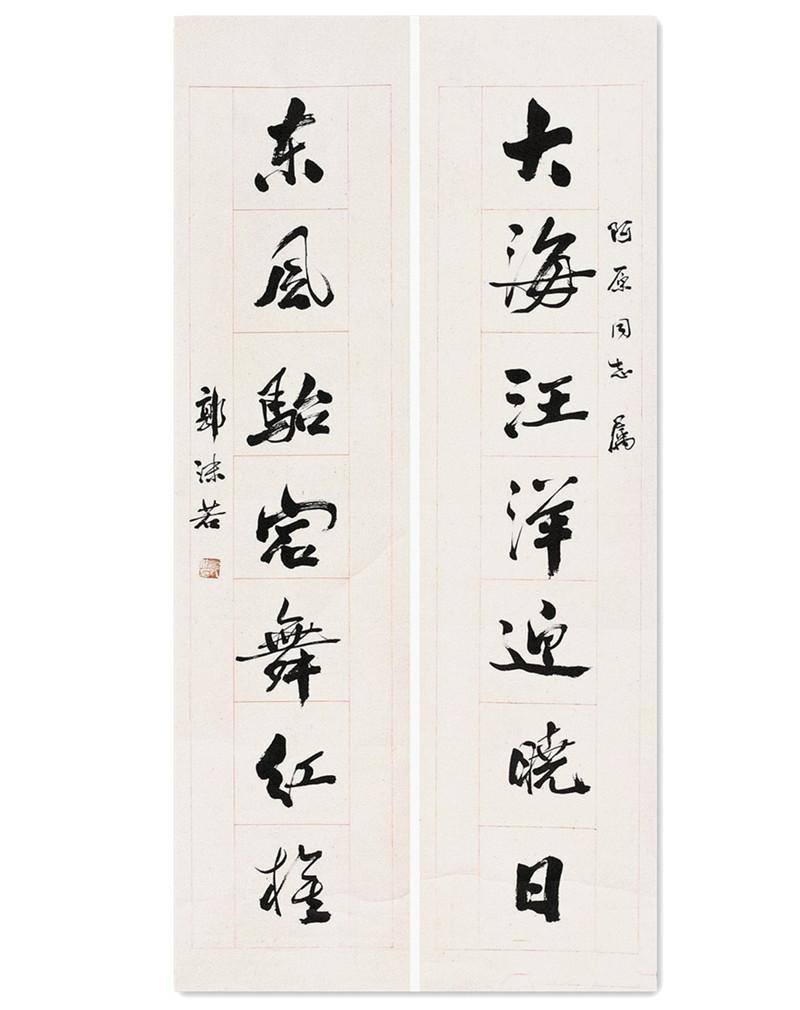 阿原同志属
大海汪洋迎晓日
东风駘宕舞红旌
郭沫若